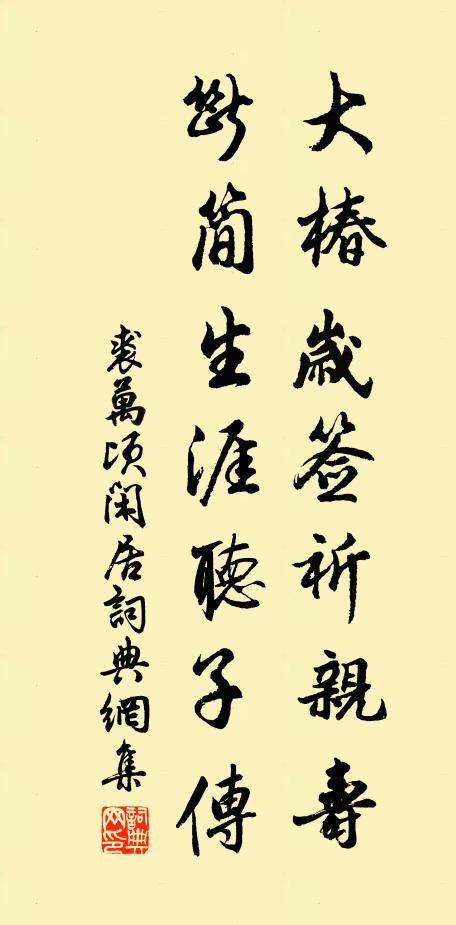 大椿歲签祈親壽
斷简生涯聽子傳
裘萬頃閑居詞典網集
詞典网印